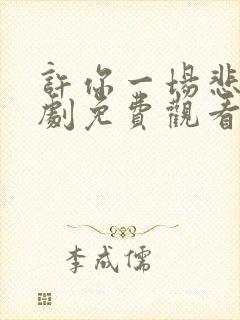 許你一場悲
劇免費觀看
李成儒